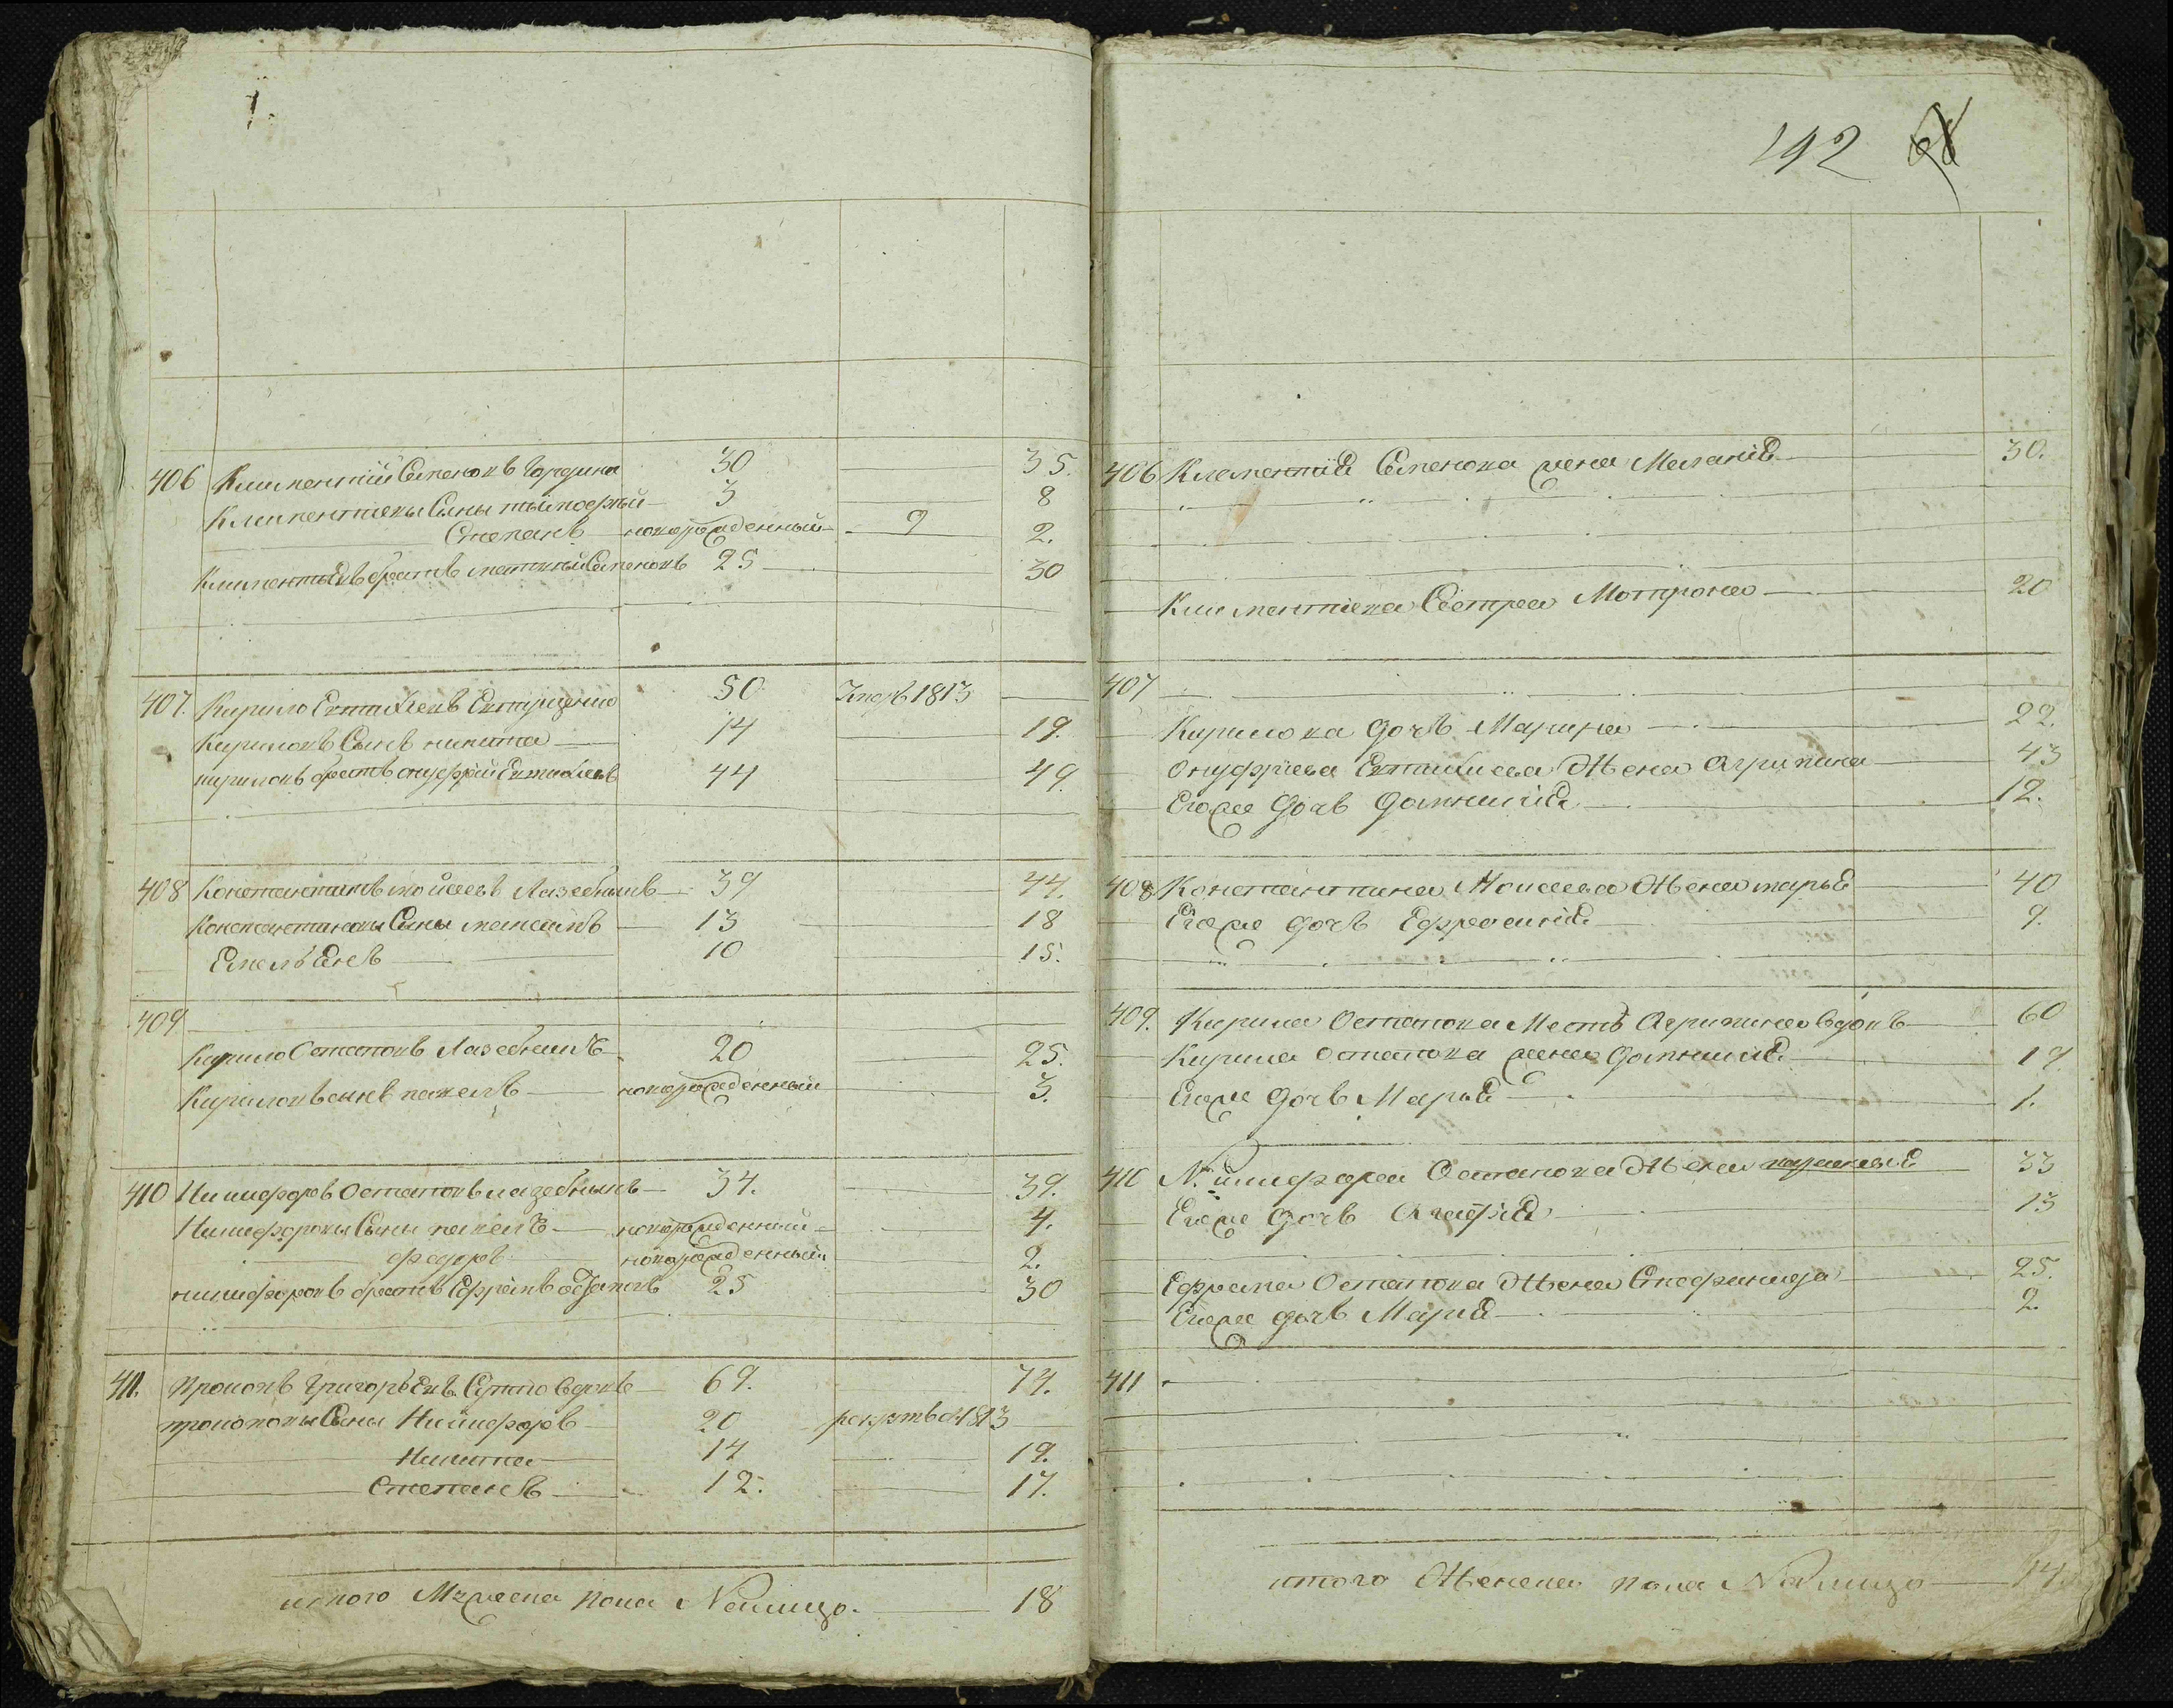 192 68
406 Климентий Семеновъ Гордина 30 35.
Климентиевы Сыны тымофий 3 8
Степанъ новорожденный 2.
Климентиевъ братъ Семеновъ 25 30
407. Кирило Евтихиевъ 50 Умеръ 1813
Кириловъ Сынъ никита 14 19.
кириловъ братъ онуфрий Евтихиевъ 44 49.
408 Константинъ мойсеевъ Лазебникъ 39 44.
Константиновы Сыны 13 18
Емельянъ 10 15.
409
Кирило Остаповъ Лазебникъ 20 25.
Кириловъ сынъ павелъ новорожденный 3.
410 Никифоръ Остаповъ лазебникъ 34. 39.
Никифоровы Сыны павелъ новорожденный 4.
федоръ новорожденный 2.
никифоровъ братъ 25 30
411. Григорьевъ вдовъ 69. 74.
Сыны Никифоръ 20 рекрутъ 1813
Никита 14 19.
Степанъ 12. 17.
итого Мужеска пола Налицо 18
406 Климентия Семенова жена Мелания 30.
Климентиева Сестра Мотрона 20
407
Кирилова дочь Марина 22.
Онуфриева Евтихиева Жена Агрипина 43
Егоже дочь Домникия 12.
408 Константина Моисеева Жена марья 40
Егоже дочь Ефросиния 9.
409. Кирила Остапова Мать Агрипина вдова 60
Кирила Остапова жена Домникия 19.
Егоже дочь Марья 1.
410 Никифора Остапова Жена 33
Егоже дочь Агафия 13
Ефрема Остапова Жена Стефанида 25.
Егоже дочь Мария 2.
411
итого Женска пола Налицо 14.